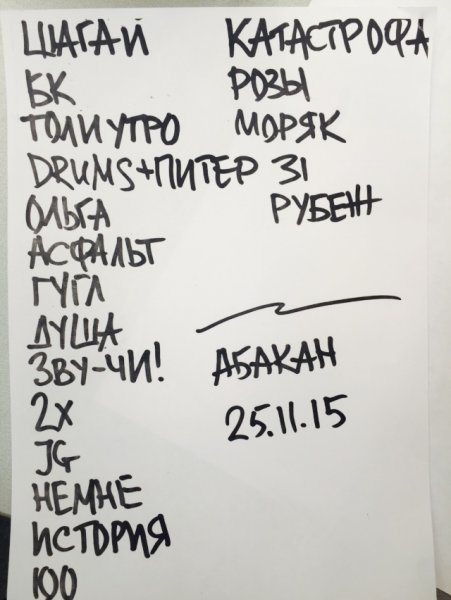 ШАГАЙ
БК
ТОЛИ УТРО
DRUMS+ПИТЕР
ОЛЬГА
АСФАЛЬТ
ГУГЛ
ДУША
ЗВУ-ЧИ!
2X
JG
НЕМНЕ
ИСТОРИЯ
100
КАТАСТРОФА
РОЗЫ
МОРЯК
31
РУБЕЖ
АБАКАН
25.11.15